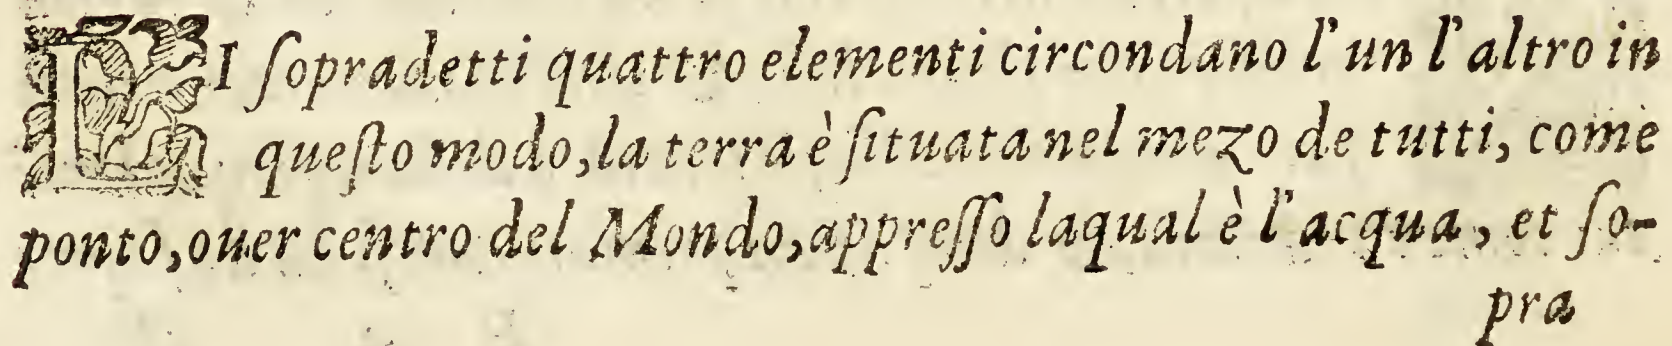 LI ſopradetti quattro elementi circondano l'un l'altro in
queſto modo, la terra è ſituata nel mezo de tutti, come
ponto, ouer centro del Mondo, appreſſo laqual è l'acqua, et ſo-
pra